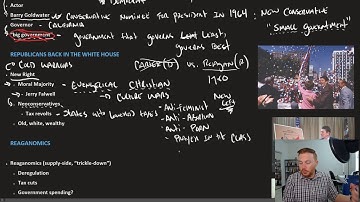 Actor
Barry Goldwater → Conservative Nominee for President in 1964. New Conservative
Governor - California "Small Government"
"Big government" Government that governs least, governs best
REPUBLICANS BACK IN THE WHITE HOUSE
Cold Warrior Carter (D) vs. Reagan (R)
New Right 1980
Moral Majority → Evangelical Christian
Jerry Falwell → Culture Wars New Left
Neoconservatives - Anti-Feminist
Tax revolts - Anti-Abortion
Old, white, wealthy - Anti-Porn
- Prayer in the Class
REAGANOMICS
Reaganomics (supply-side, "trickle-down")
Deregulation
Tax cuts
Government spending?